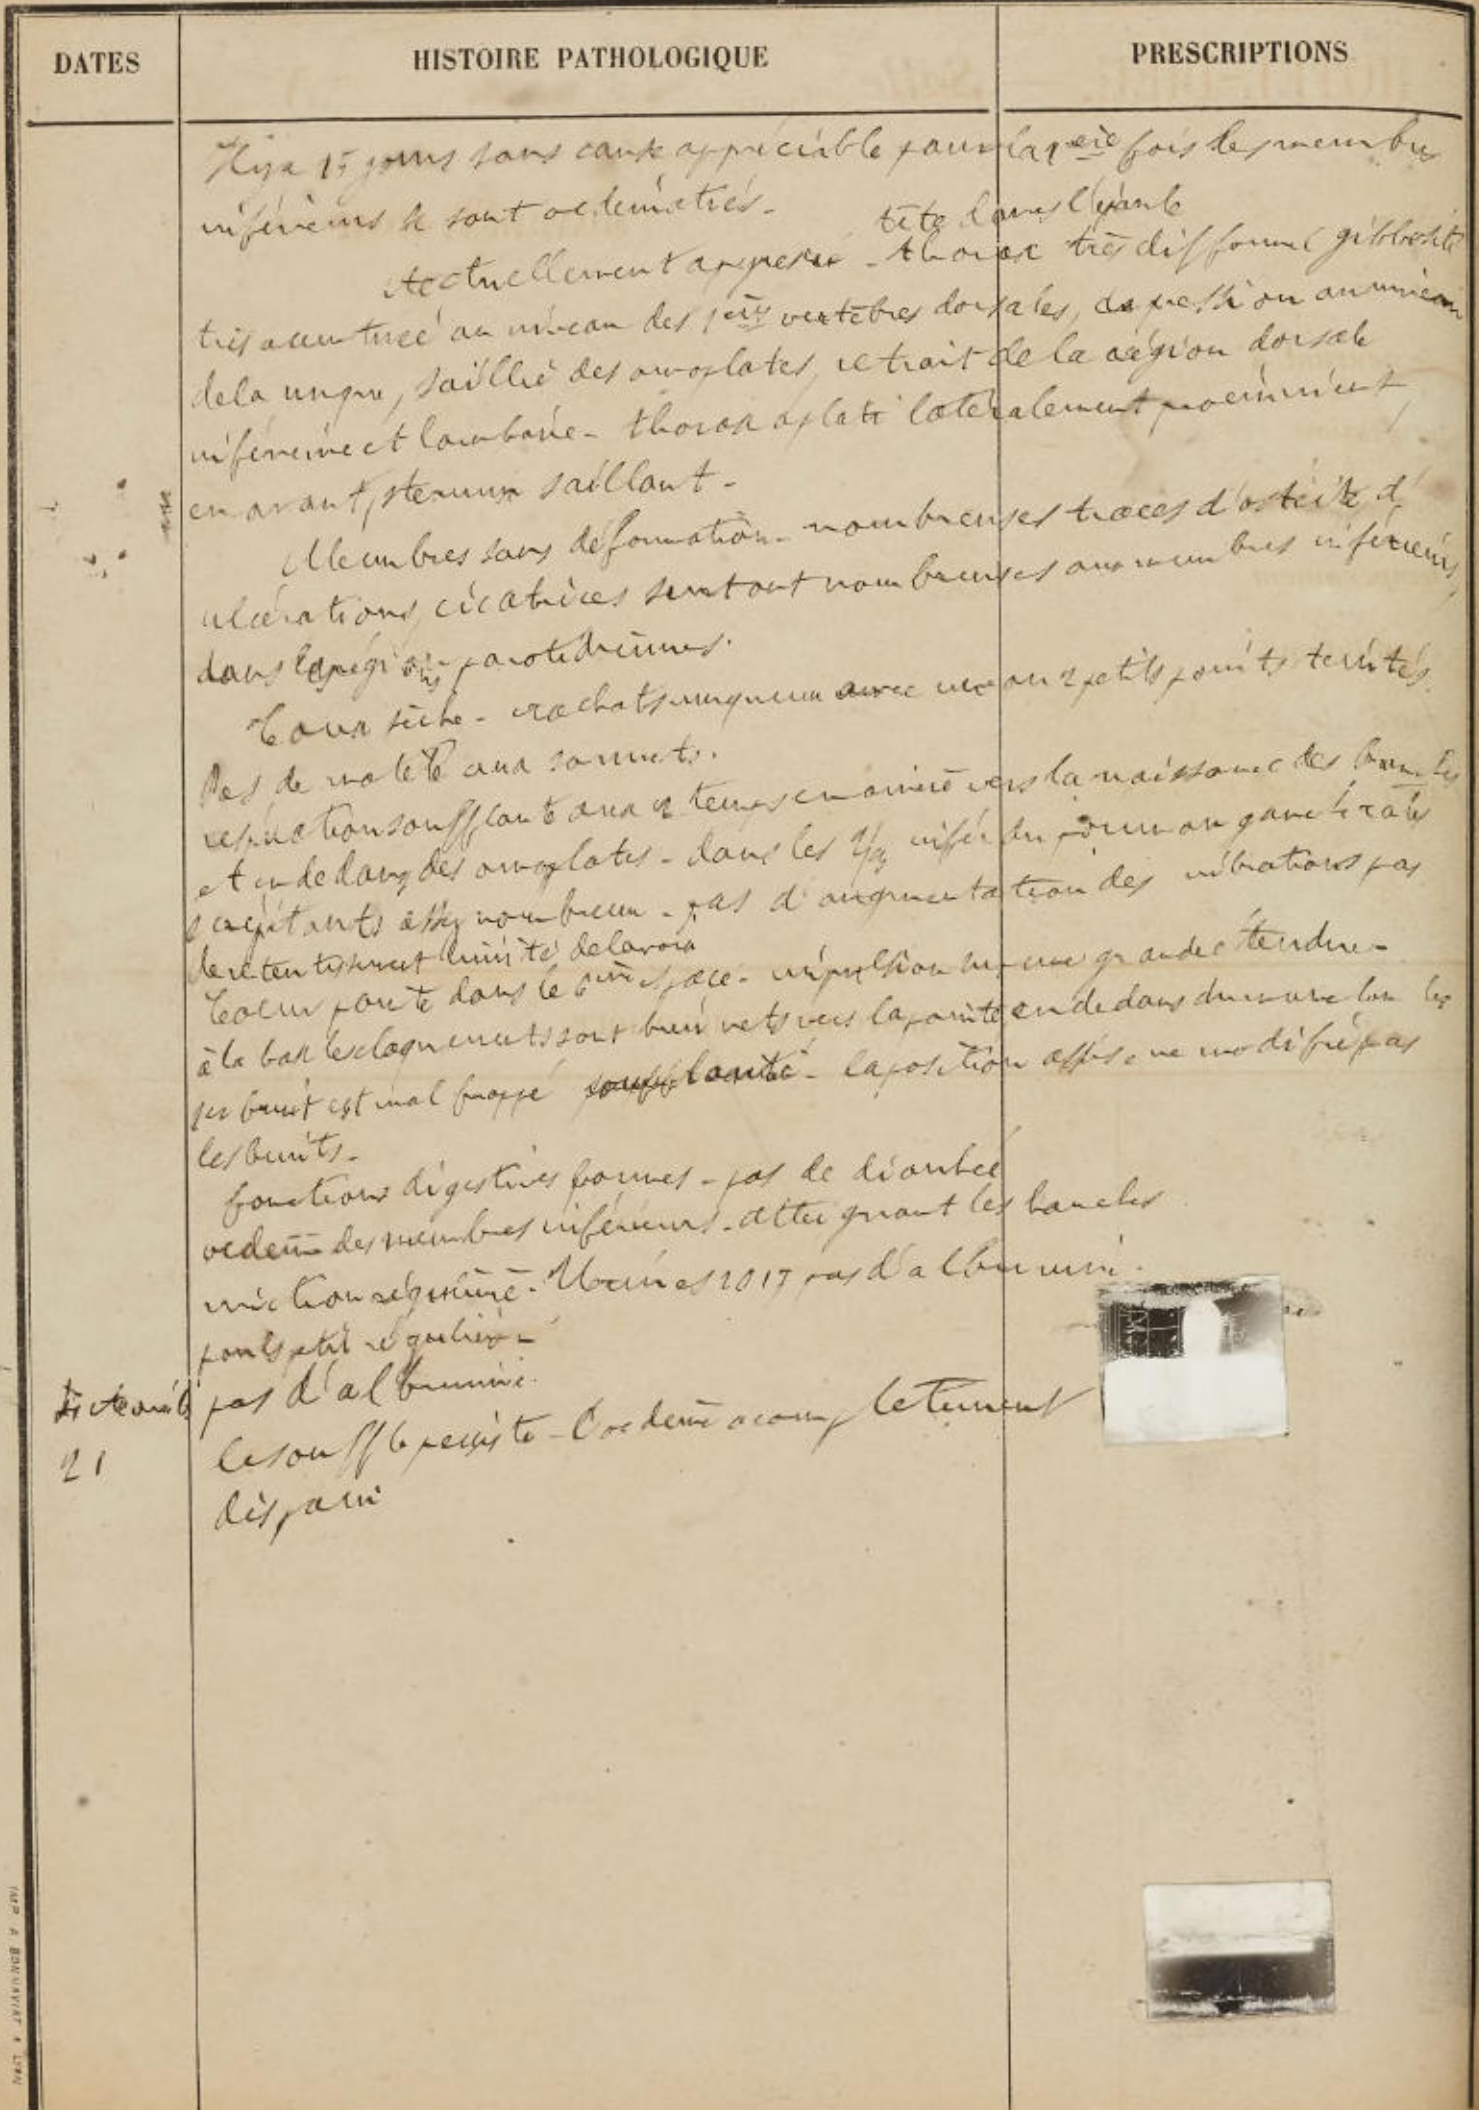 DATES HISTOIRE PATHOLOGIQUE PRESCRIPTIONS
Il y a 15 jours sans cause appréciable pour la 1ère fois les membres
inférieurs se sont oedématiés -
tête dans l'épaule
Actuellement - thorax très difforme gibbosité
très accentuée au niveau des 1ères vertèbres dorsales, dépression au niveau
de la nuque, saillie des omoplates, retrait de la région dorsale
inférieure et lombaire - thorax aplati latéralement proéminent
en avant, sternum saillant -
Membres sans déformation - nombreuses traces d'ostéite, d'
ulcérations, cicatrices surtout nombreuses aux membres inférieurs,
dans les régions parotidiennes.
Toux sèche - crachats muqueux avec un ou 2 petits points teintés.
Pas de matité aux sommets.
respiration soufflante aux 2 temps en arrière vers la naissance des bronches
et en dedans des omoplates - dans les 2/3 infér du poumon gauche rales
s crépitants assez nombreux - pas d'augmentation des vibrations pas
de retentissement de la voix
Coeur pointe dans le 6ème espace - impulsion sur une grande étendue -
à la base les claquements sont bien nets vers la pointe en dedans du mamelon le
1er bruit est mal frappé soufflant - la position assise ne modifie pas
les bruits -
fonctions digestives bonnes - pas de diarrhée
oedème des membres inférieurs - atteignant les hanches
miction régulière - Urines 1017 pas d'albumine -
pouls petit régulier -
pas d'albumine.
21 le souffle persiste - l'oedème a complètement
disparu
IMP A BONNAVIAT A LYON